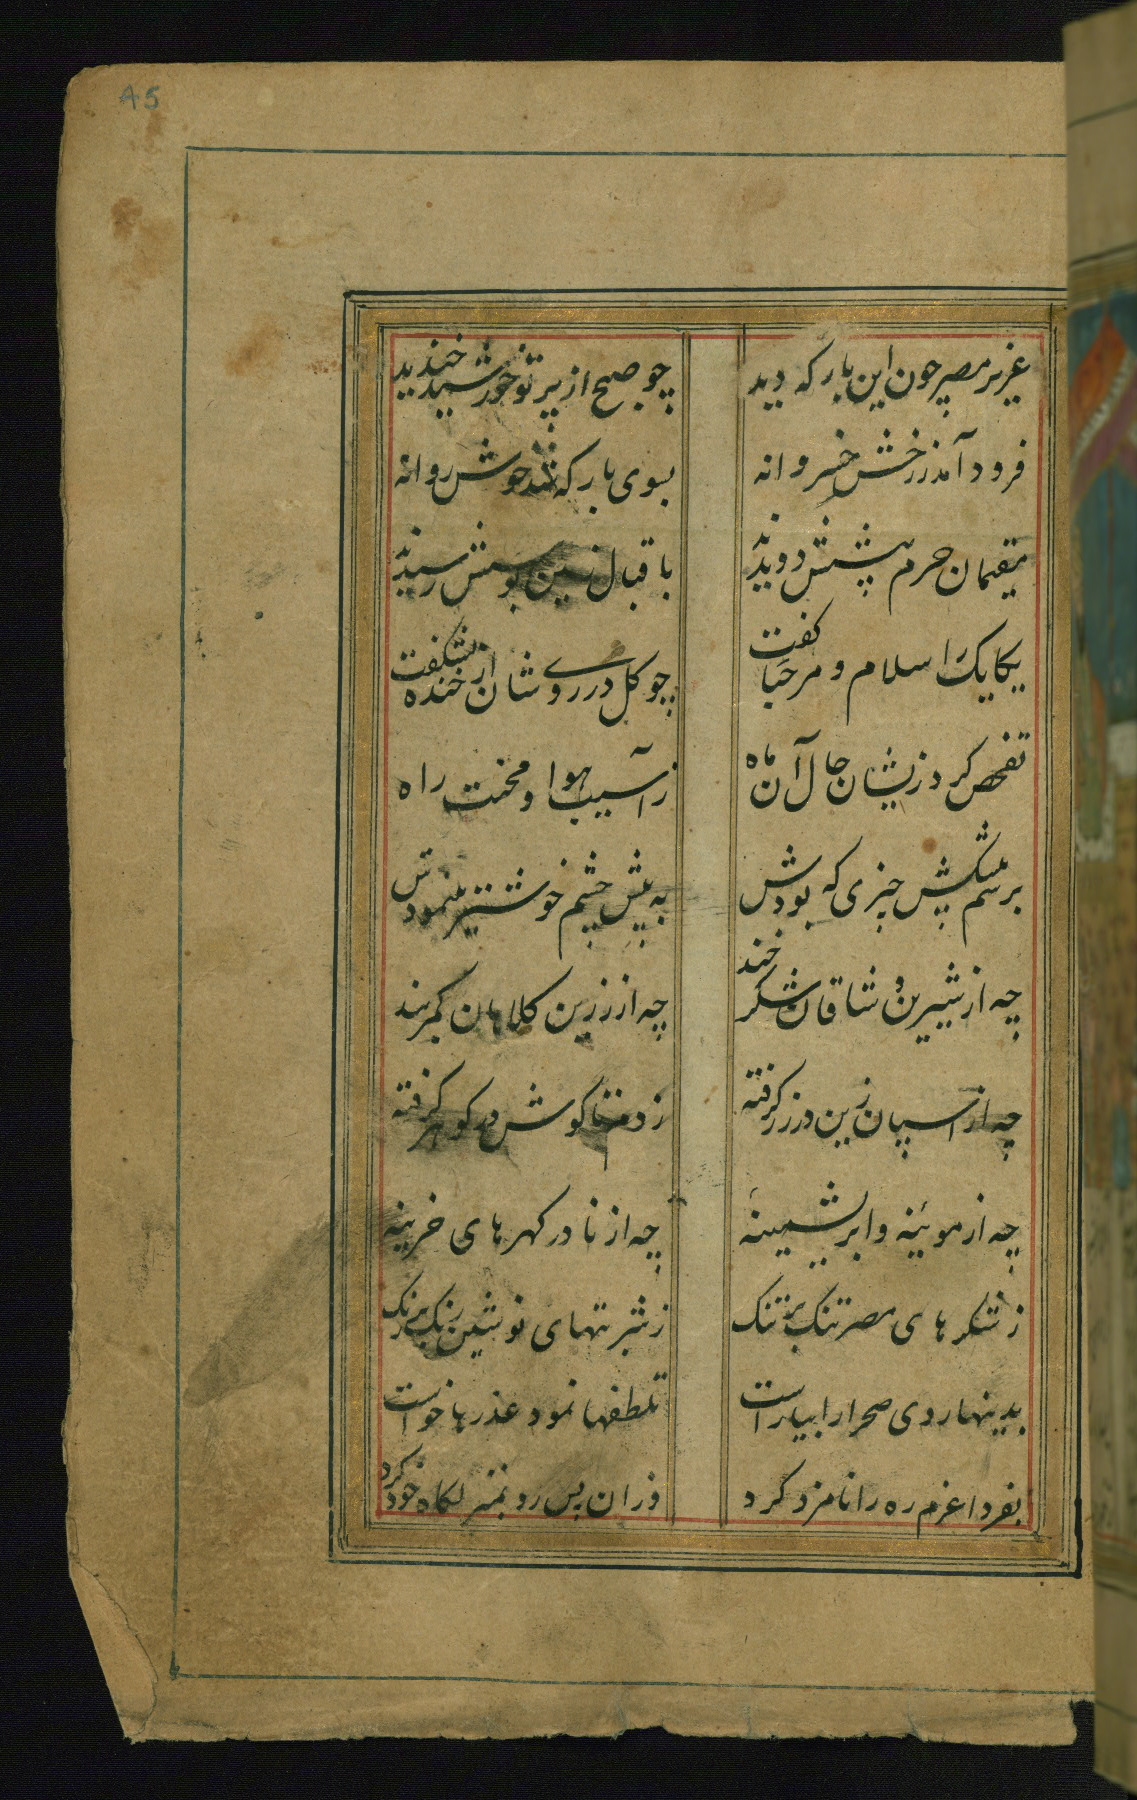 45
عزیز مصر چون این بارکه دید
چو صبح از پرتو خورشید خندید
فرود آمد ز رخش خسروانه
بسوی بارکه شد خوش روانه
مقیمان حرم پیشش دویدند
باقبال زمین بوسش رسیدند
یکایک را سلام و مرحبا کفت
چو کل در روی شان از خنده بشکفت
تفحص کرد زیشان حال آن ماه
ز آسیب هوا و محنت راه
برسم پیشکش چیزی که بودش
به پیش چشم خوشتر مینمودش
چه از شیرین وشاقان شکر خند
چه از زرین کلاهان کمربند
چه از اسپان زین در زر کرفته
ز دم تا کوش در کوهر کرفته
چه از موئینه و ابریشمینه
چه از نادر کهرهای خزینه
ز شکرهای مصر تنک بر تنک
ز شربتهای نوشین رنک برنک
بدینها روی صحرا را بیاراست
تلطفها نمود عذرها خواست
بفردا عزم ره را نامزد کرد
وزان پس رو بمنزلکاه خود کرد